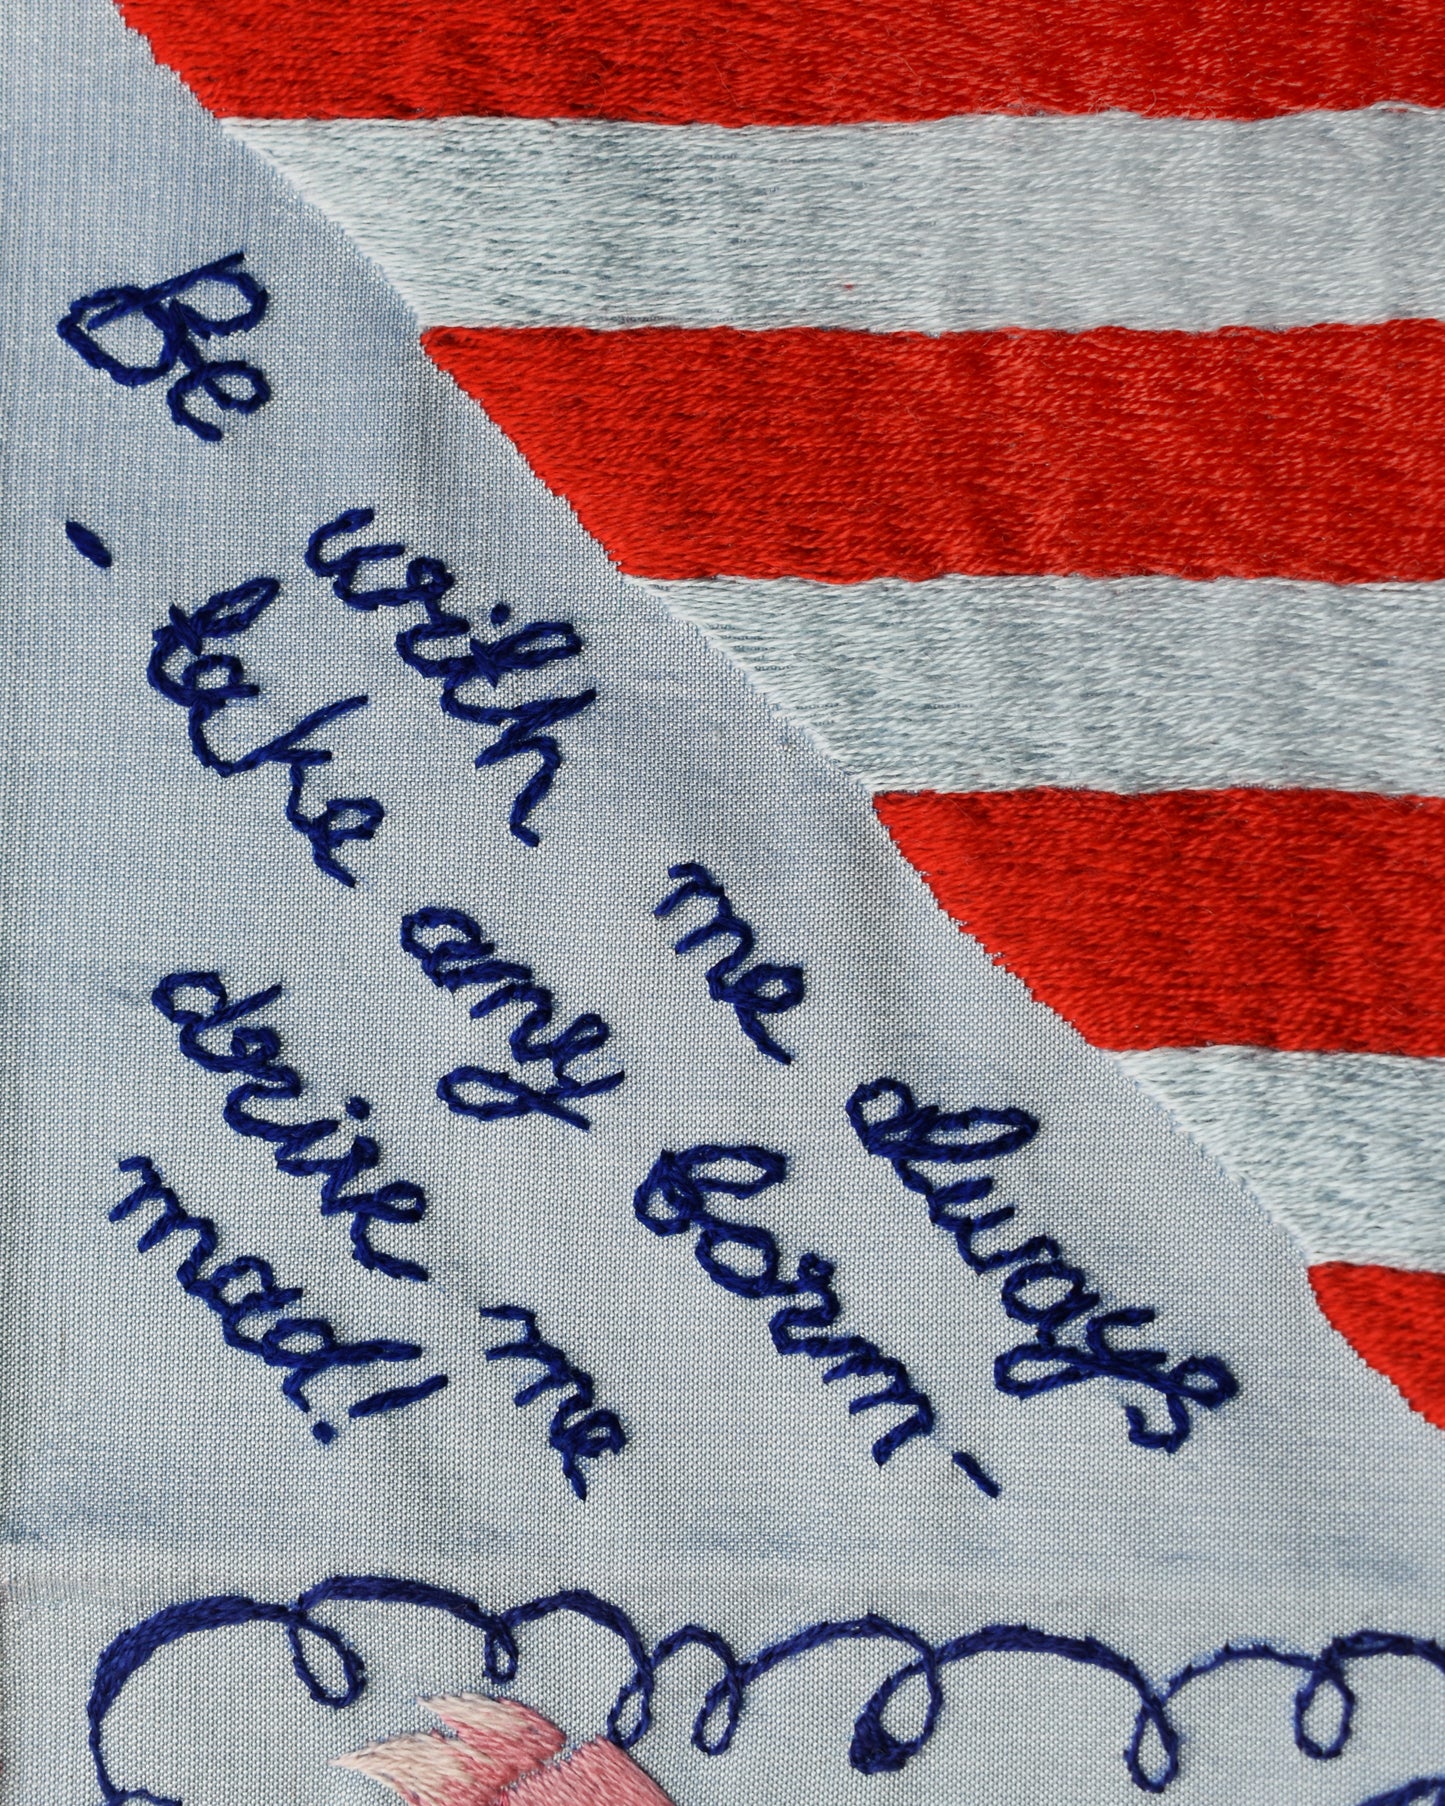 Be with me always
- take any form -
drive me
mad!